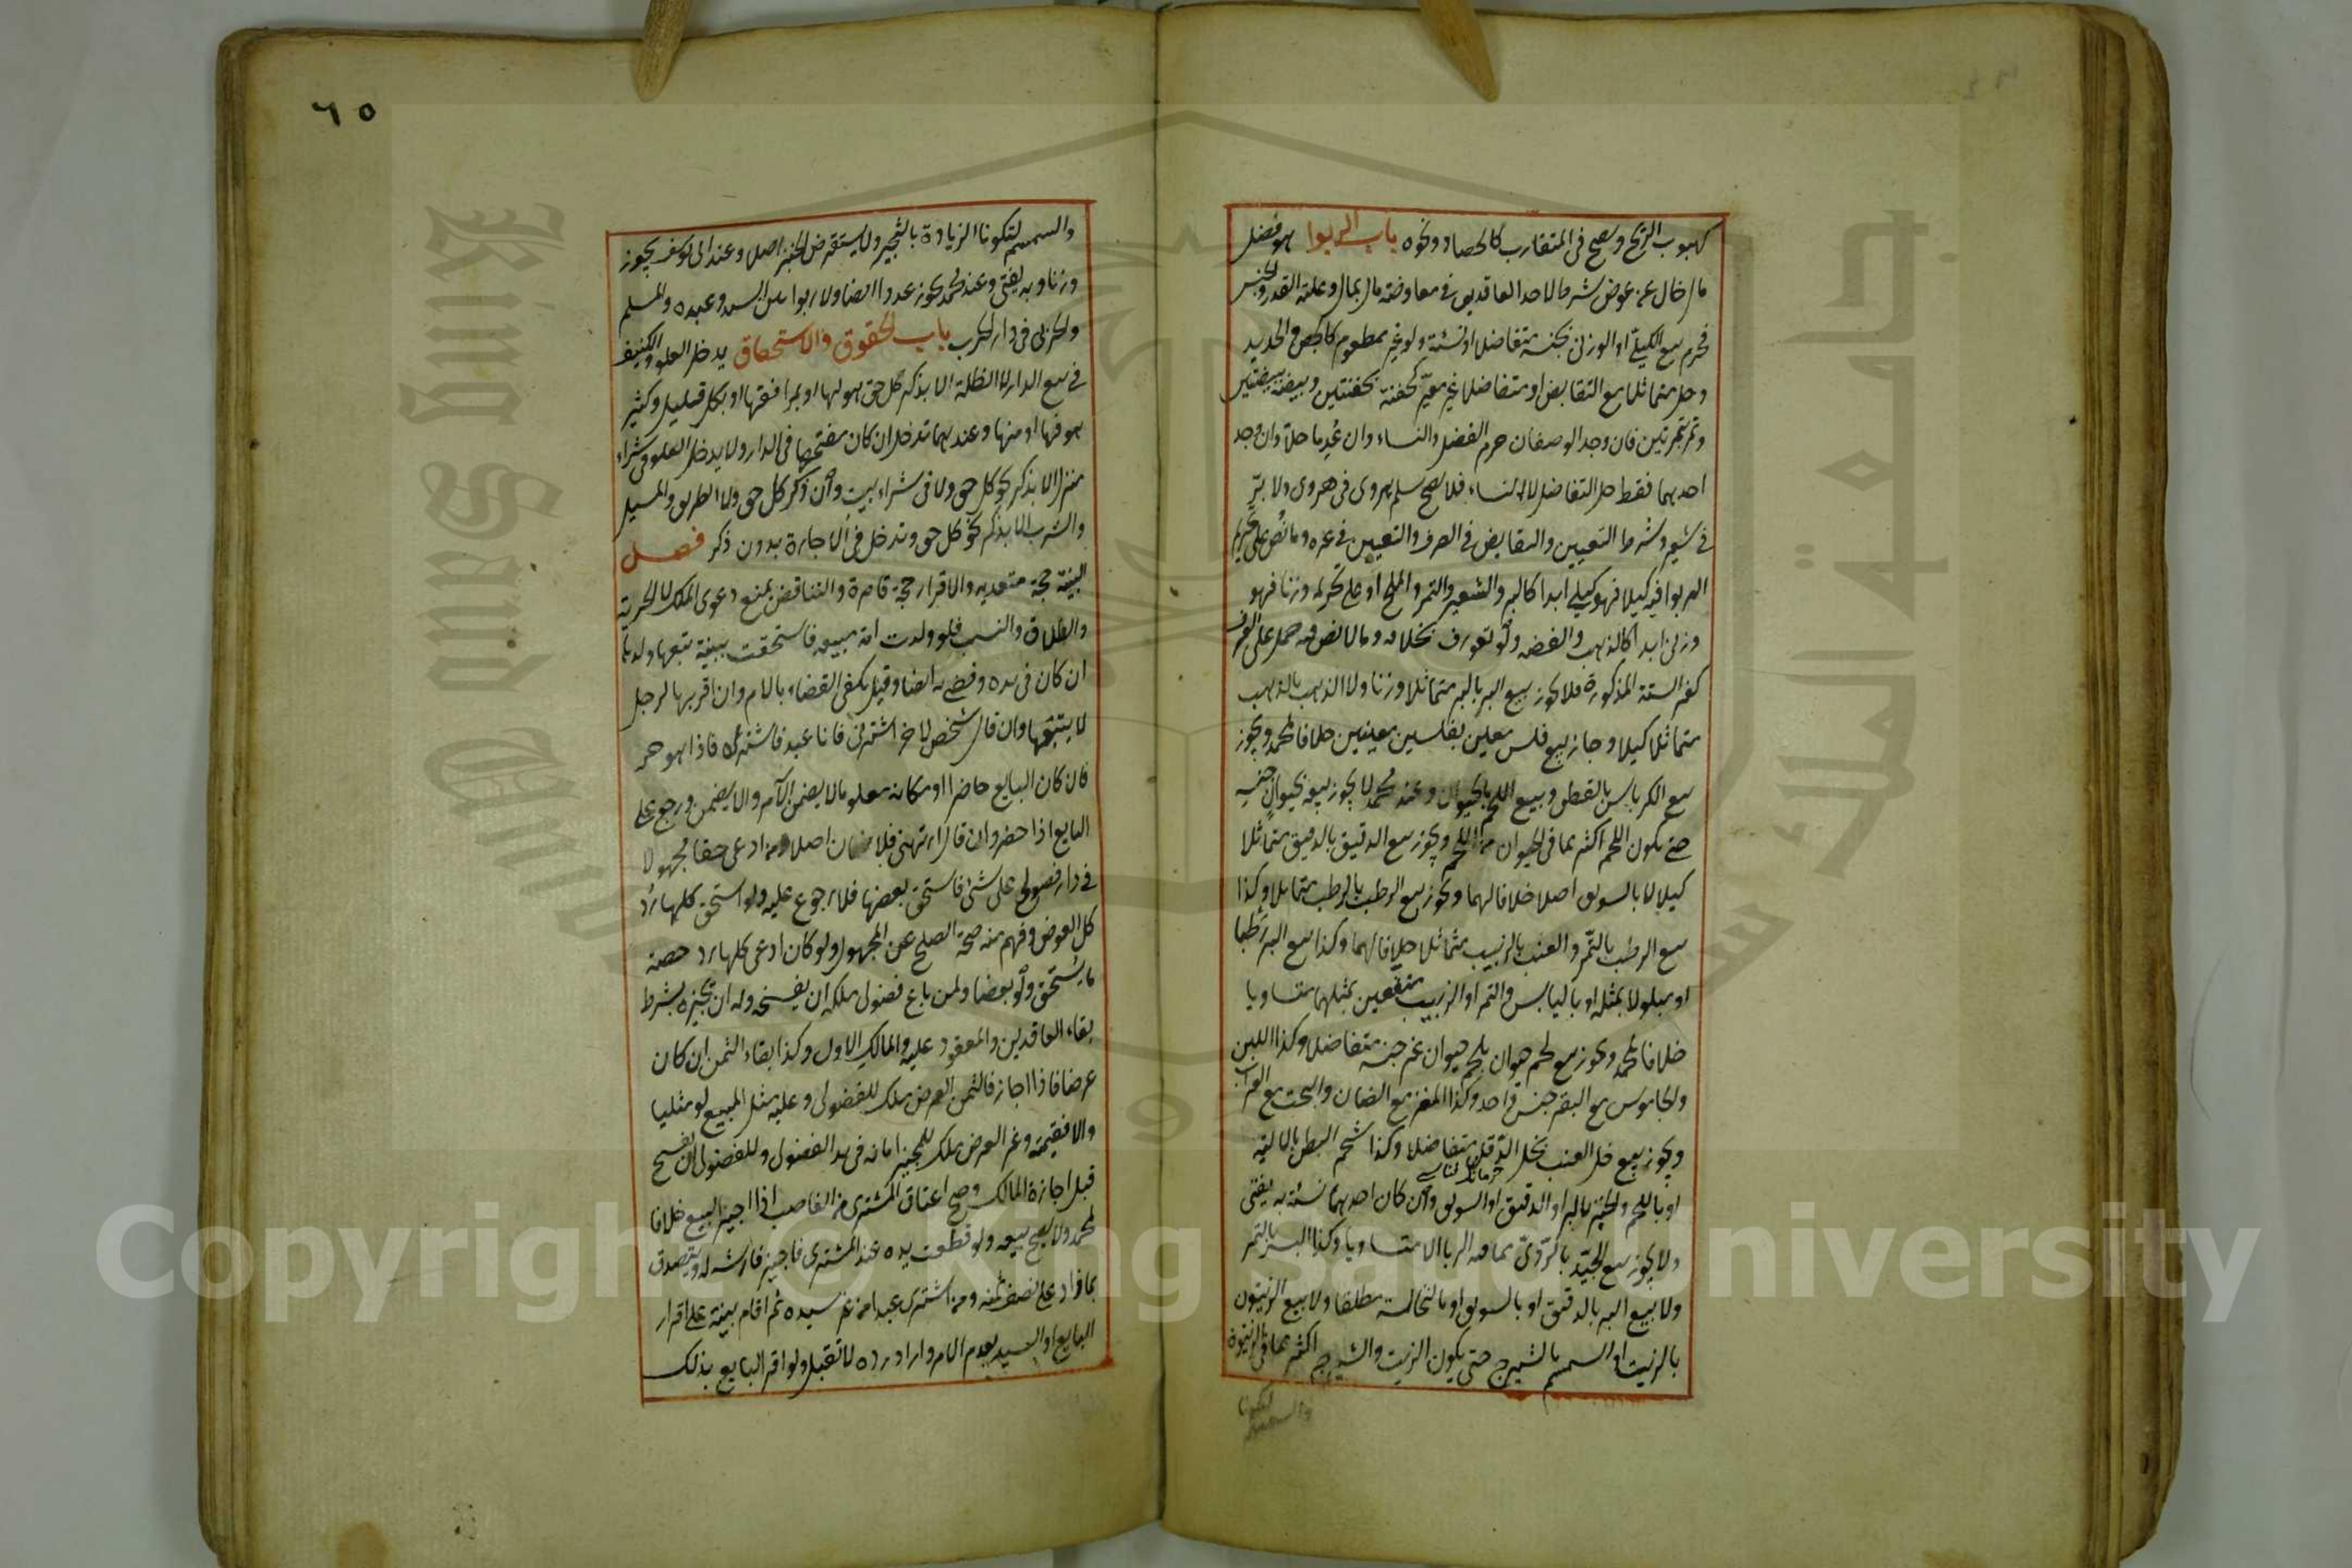 كهبوب الريح ويصح في المتقارب كالحصاد ونحوه باب الربوا هو فضل
مال خال عن عوض شرط لاحد العاقدين في معاوضة مال بمال وعلته القدر والجنس
فحرم بيع الكيلي او الوزني بجنسه متفاضلا او نسئة ولو غير مطعوم كالجص والحديد
وحل متماثلا مع التقابض او متفاضلا غير معير كحفنة بحفنتين وبيضة ببيضتين
وتمرة بتمرتين فان وجد الوصفان حرم الفضل والنساء وان عدما حلا وان وجد
احدهما فقط حل التفاضل لا النساء فلا يصح سلم هروي في هروي ولا بر
في شعير وشرط التعيين والتقابض في الصرف والتعيين في غيره وما نص على تحريم
الربوا فيه كيلا فهو كيلي ابدا كالبر والشعير والتمر والملح او على تحريمه وزنا فهو
وزني ابدا كالذهب والفضة ولو تعورف بخلافه وما لا نص فيه حمل على العرف
كغير الستة المذكورة فلا يجوز بيع البر بالبر متماثلا وزنا ولا الذهب بالذهب
متماثلا كيلا وجاز بيع فلس معين بفلسين معينين خلافا لمحمد ويجوز
بيع الكرباس بالقطن وبيع اللحم بالحيوان وعند محمد لا يجوز بيعه بحيوان جنسه
حتى يكون اللحم اكثر مما في الحيوان من اللحم ويجوز بيع الدقيق بالدقيق متماثلا
كيلا لا بالسويق اصلا خلافا لهما ويجوز بيع الرطب بالرطب متماثلا وكذا
بيع الرطب بالتمر والعنب بالزبيب متماثلا خلافا لهما وكذا بيع البر رطبا
او مبلولا بمثله او باليابس والتمر او الزبيب منقعين بمثلهما متساويا
خلافا لمحمد ويجوز بيع لحم حيوان بلحم حيوان غير جنسه متفاضلا وكذا اللبن
والجاموس مع البقر جنس واحد وكذا المعز مع الضان والبخت مع العراب
ويجوز بيع خل العنب بخل الدقل متفاضلا وكذا شحم البطن بالالية
او باللحم والخبز بالبر او الدقيق او السويق وان كان احدهما نسئة به يفتى
ولا يجوز بيع الجيد بالردي مما فيه الربا الا متساويا وكذا البسر بالتمر
ولا بيع البر بالدقيق او بالسويق او بالنخالة مطلقا ولا بيع الزيتون
بالزيت او السمسم بالشيرج حتى يكون الزيت والشيرج اكثر مما في الزيتون
والسمسم لتكون
٦٥
والسمسم لتكون الزيادة بالثجير ولا يستقرض الخبز اصلا وعند ابي يوسف يجوز
وزنا وبه يفتى وعند محمد يجوز عددا ايضا ولا ربوا بين السيد وعبده والمسلم
والحربي في دار الحرب باب الحقوق والاستحقاق يدخل العلو والكنيف
في بيع الدار لا الظلة الا بذكر كل حق هو لها او بمرافقها او بكل قليل وكثير
هو فيها او منها وعندهما تدخل ان كان مفتحها في الدار ولا يدخل العلو في شراء
منزل الا بذكر نحو كل حق ولا في شراء بيت وان ذكر كل حق ولا الطريق والمسيل
والشرب الا بذكر نحو كل حق وتدخل في الاجارة بدون ذكر فصل
البينة حجة متعدية والاقرار حجة قاصرة والتناقض يمنع دعوى الملك لا الحرية
والطلاق والنسب فلو ولدت امة مبيعة فاستحقت ببينة تبعها ولدها
ان كان في يده وقضى به ايضا وقيل يكفي القضاء بالام وان اقر بها لرجل
لا يتبعها وان قال شخص لاخر اشترني فانا عبد فاشتراه فاذا هو حر
فان كان البايع حاضرا او مكانه معلوما لا يضمن الآمر والا يضمن ورجع على
البايع اذا حضر وان قال ارتهني فلا ضمان اصلا ومن ادعى حقا مجهولا
في دار فصولح على شئ فاستحق بعضها فلا رجوع عليه ولو استحق كلها رد
كل العوض وفهم منه صحة الصلح عن المجهول ولو كان ادعى كلها رد حصة
ما يستحق ولو بعضا ولمن باع فضولي ملكه ان يفسخه وله ان يجيزه بشرط
بقاء العاقدين والمعقود عليه والمالك الاول وكذا بقاء الثمن ان كان
عرضا فاذا اجاز فالثمن العرض ملك للفضولي وعليه مثل المبيع لو مثليا
والا فقيمته وغير العرض ملك للمجيز امانة في يد الفضولي وللفضولي ان يفسخ
قبل اجازة المالك وصح اعتاق المشتري من الغاصب اذا اجيز البيع خلافا
لمحمد ولا يصح بيعه ولو قطعت يده عند المشتري فاجيز فارشه له ويتصدق
بما زاد على نصف ثمنه ومن اشترى عبدا من غير سيده ثم اقام بينة على اقرار
البايع او السيد بعدم الامر واراد رده لا تقبل ولو اقر البايع بذلك
King Saud University
جامعة الملك سعود
Copyright © King Saud University